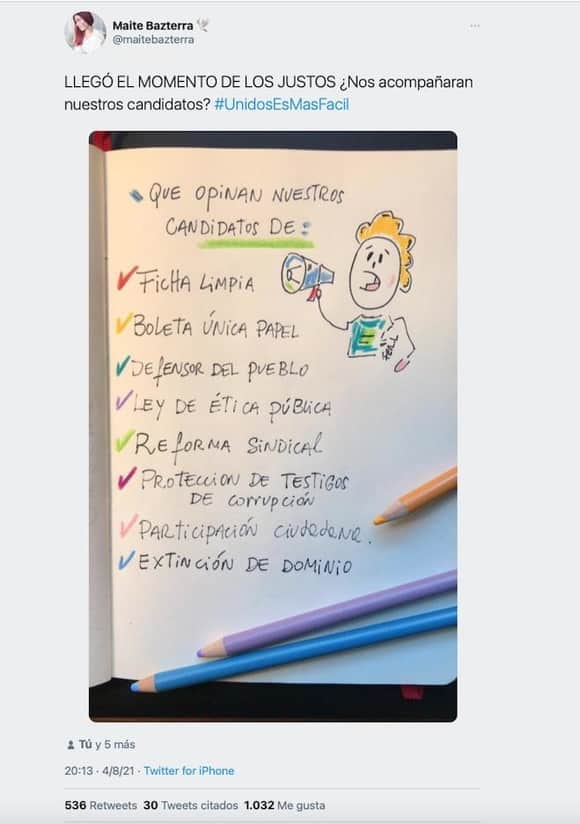 Maite Bazterra
@maitebazterra
LLEGÓ EL MOMENTO DE LOS JUSTOS ¿Nos acompañaran
nuestros candidatos? #UnidosEsMasFacil
QUE OPINAN NUESTROS
CANDIDATOS DE:
FICHA LIMPIA
BOLETA ÚNICA PAPEL
DEFENSOR DEL PUEBLO
LEY DE ÉTICA PÚBLICA
REFORMA SINDICAL
PROTECCION DE TESTIGOS
DE CORRUPCIÓN
PARTICIPACIÓN CIUDADANA.
EXTINCIÓN DE DOMINIO
Tú y 5 más
20:13 · 4/8/21 · Twitter for iPhone
536 Retweets 30 Tweets citados 1.032 Me gusta